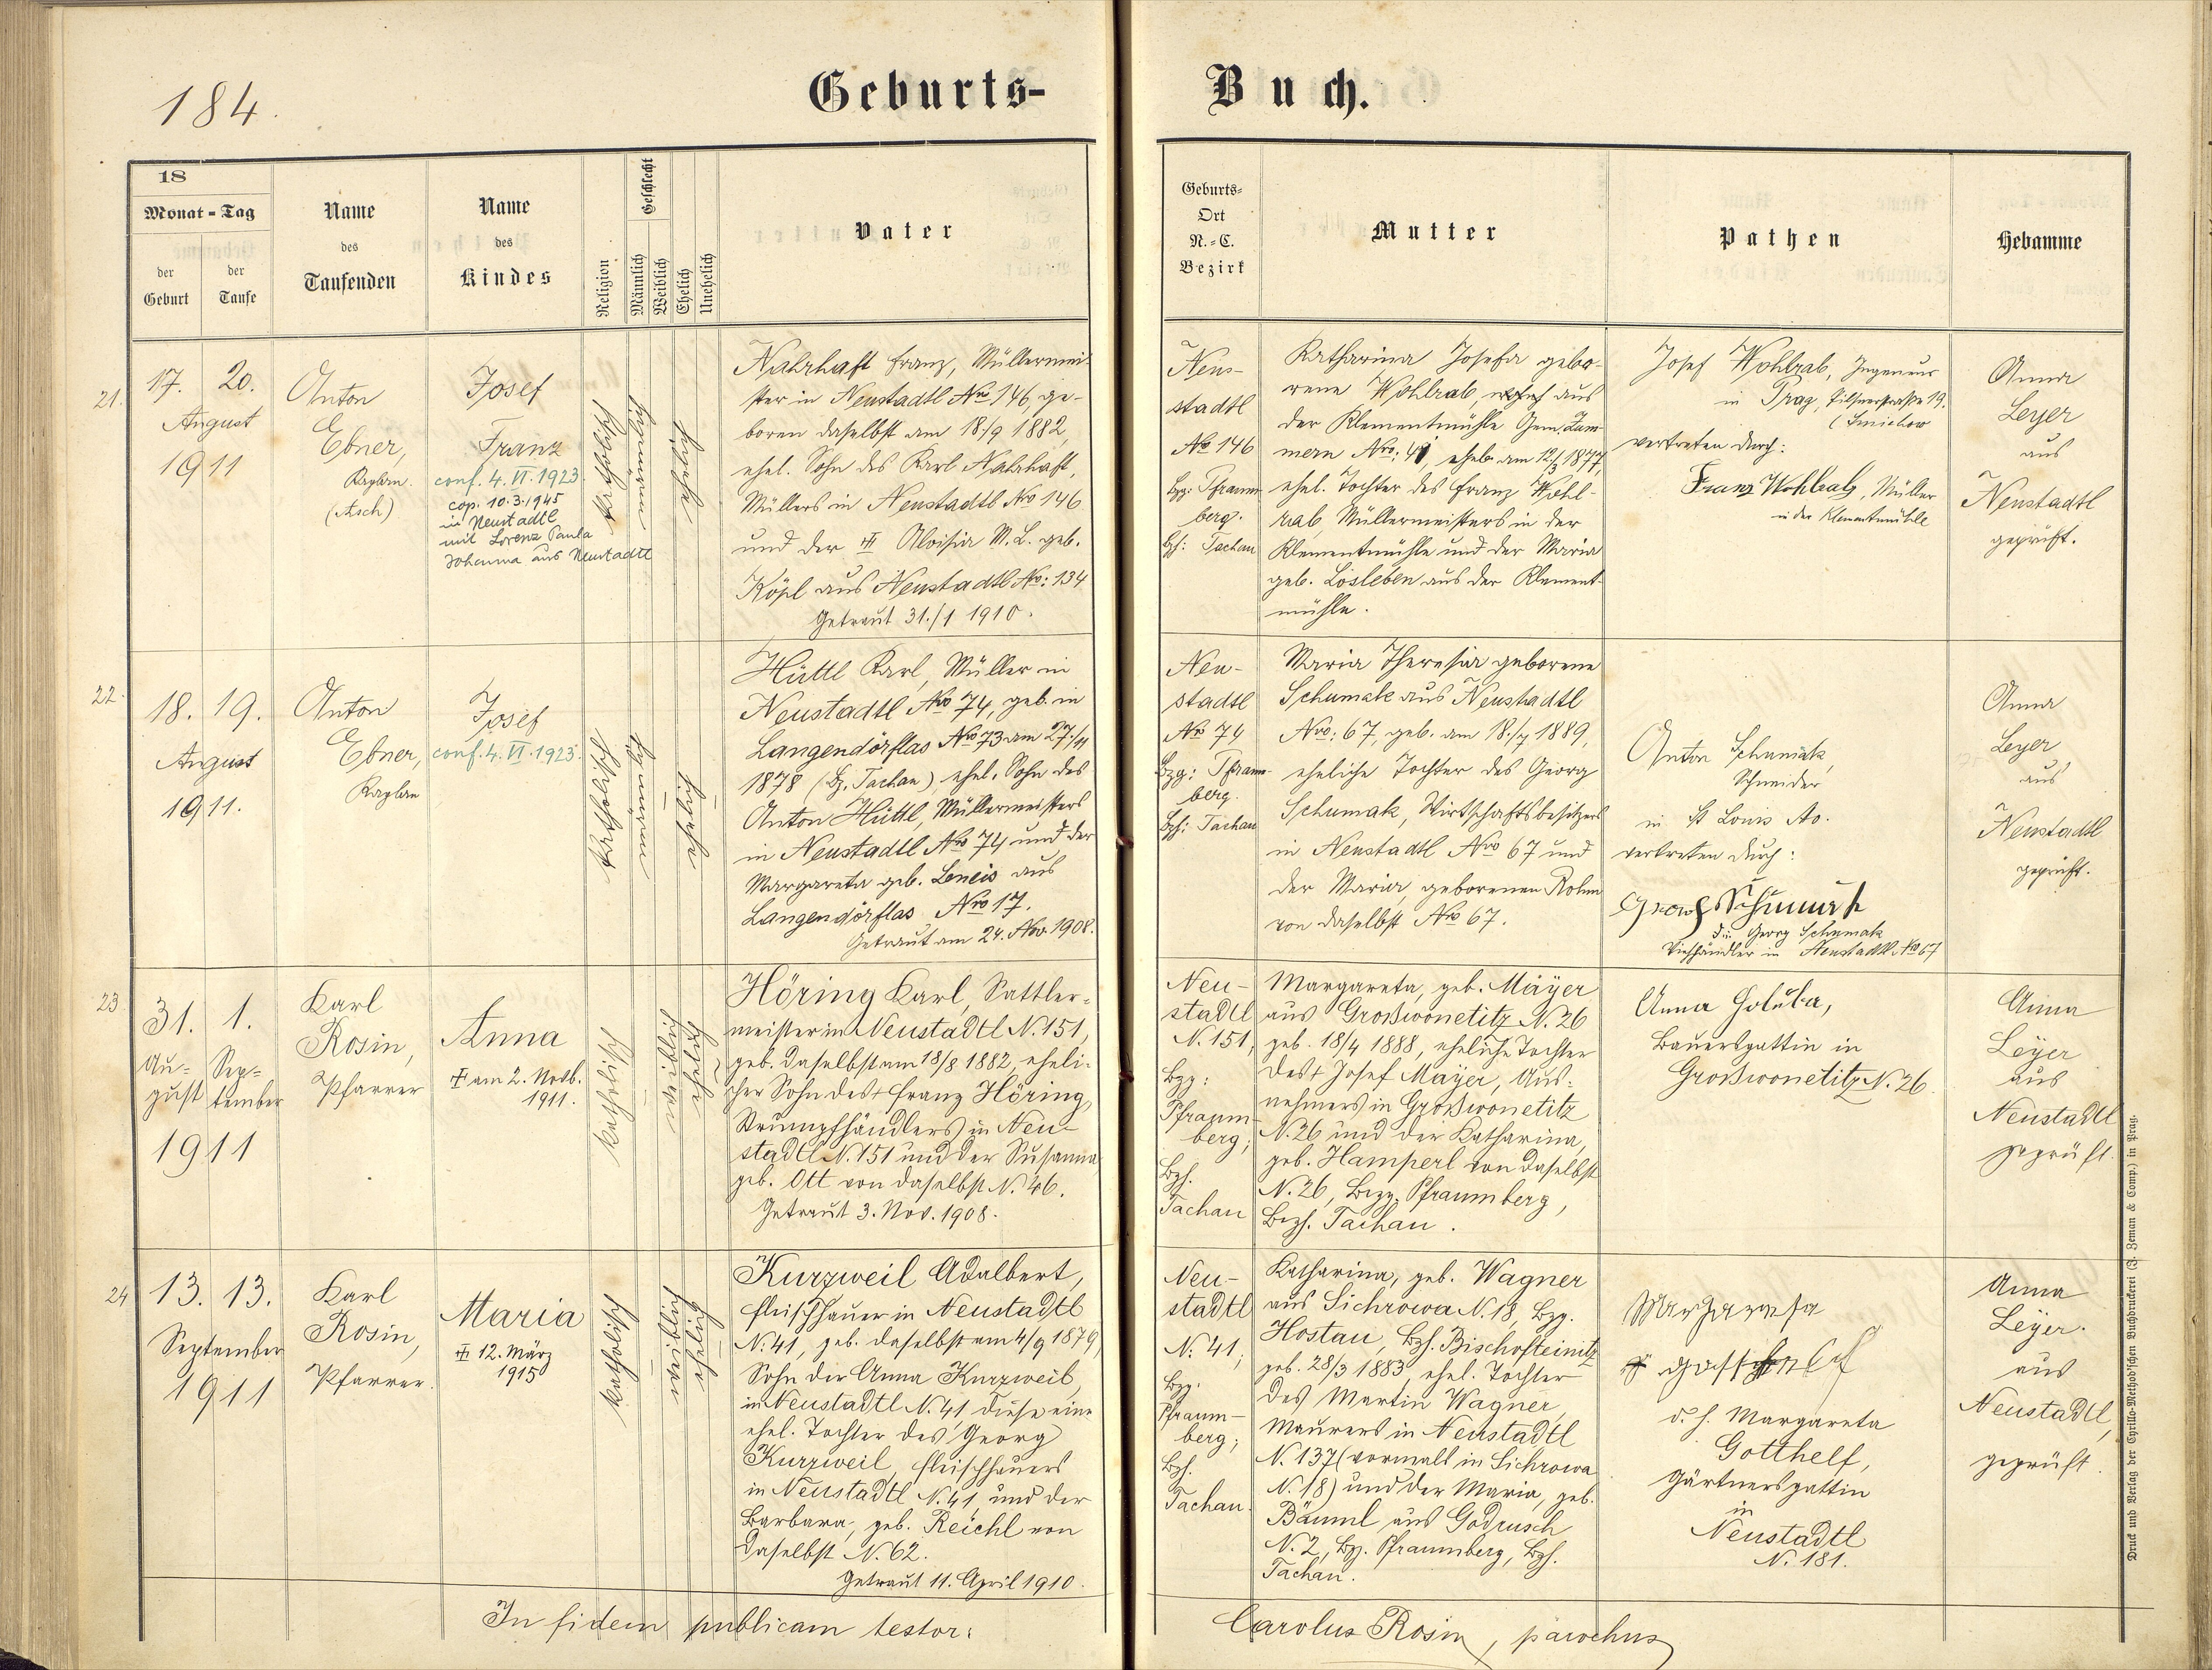 184.
Geburts-
Buch.
18
Monat - Tag
der Geburt
der Taufe
Name
des
Taufenden
Name
des
Kindes
Religion
Geschlecht
Männlich
Weiblich
Ehelich
Unehelich
Vater
Geburts-
Ort
N.-C.
Bezirk
Mutter
Pathen
Hebamme
21.
17. 20.
August
1911
Anton
Ebner,
Kaplan.
(Asch)
Josef
Franz
conf. 4. VI. 1923
cop. 10.3.1945
in Neustadtl
mit Lorenz Paula
Johanna aus Neustadtl
katholisch
Nahrhaft Franz, Müllermei-
ster in Neustadtl Nro 146, ge-
boren daselbst am 18./9 1882,
ehel. Sohn des Karl Nahrhaft,
Müllers in Neustadtl Nro 146
und der Aloisia M. L. geb.
Köpl aus Neustadtl Nro: 134
Getraut 31./1 1910.
Neu-
stadtl
No 146
Bzg: Pfraum-
berg.
Bzh: Tachau
Katharina Josefa gebo-
rene Wohlrab, aus
der Klementmühle Gem.
Nro: ehel. am 12/3 1877,
ehel. Tochter des Franz Wohl-
rab, Müllermeisters in der
Klementmühle und der Maria
geb. Losleben aus der Klement-
mühle.
Josef Wohlrab, Ingenieur
in Prag, Pilsnerstraße 19.
(Smichow
vertreten durch:
Franz Wohlrab, Müller
in der Klementmühle
Anna
Leyer
aus
Neustadtl
geprüft.
22.
18. 19.
August
1911.
Anton
Ebner,
Kaplan
Josef
conf. 4. VI. 1923.
katholisch
Hüttl Karl, Müller in
Neustadtl Nro 74, geb. in
Langendörflas Nro 73 am 27./11
1878 (Bz. Tachau), ehel. Sohn des
Anton Hüttl, Müllermeisters
in Neustadtl Nro 74 und der
Margareta geb. Leneis aus
Langendörflas Nro 17.
Getraut am 24. Nov. 1908.
Neu-
stadtl
No 74
Bzg: Pfraum-
berg.
Bzh: Tachau
Maria Theresia geborene
Schumak aus Neustadtl
Nro: 67, geb. am 18./7 1889,
eheliche Tochter des Georg
Schumak, Wirtschaftsbesitzers
in Neustadtl Nro 67 und
der Maria, geborenen Rohm
von daselbst Nro 67.
Anton Schumak,
Schneider
in St Louis
vertreten durch:
Georg Schumak
d.i. Georg Schumak
Viehhändler in Neustadtl No 67
Anna
Leyer
aus
Neustadtl
geprüft.
23
31. 1.
Au- Sep-
gust tember
1911
Karl
Rosin,
Pfarrer
Anna
am 2. Novb.
1911.
katholisch
Höring Karl, Sattler-
meister in Neustadtl N. 151,
geb. daselbst am 18/8 1882, eheli-
cher Sohn des † Franz Höring,
Strumpfhändlers in Neu-
stadtl N. 151 und der Susanna
geb. Ott von daselbst N. 46.
Getraut 3. Nov. 1908.
Neu-
stadtl
N. 151,
Bzg:
Pfraum-
berg;
Bzh.
Tachau
Margareta, geb. Mayer
aus Großwonetitz N. 26
geb. 18/4 1888, eheliche Tochter
des † Josef Mayer, Aus-
nehmers in Großwonetitz
N. 26 und der Katharina,
geb. Hamperl von daselbst
N. 26, Bezg. Pfraumberg,
Bezh. Tachau.
Anna Holuba,
Bauersgattin in
Großwonetitz N. 26.
Anna
Leyer
aus
Neustadtl
geprüft.
24
13. 13.
September
1911
Karl
Rosin,
Pfarrer.
Maria
12. März
1915
katholisch
Kurzweil Adalbert,
Fleischhauer in Neustadtl
N. 41, geb. daselbst am 4/9 1879,
Sohn der Anna Kurzweil,
in Neustadtl N. 41, diese eine
ehel. Tochter des Georg
Kurzweil, Fleischhauers
in Neustadtl N. 41, und der
Barbara, geb. Reichl von
daselbst N. 62.
Getraut 11. April 1910.
Neu-
stadtl
N. 41;
Bzg.
Pfraum-
berg;
Bzh.
Tachau.
Katharina, geb. Wagner
aus Sichrowa N. 18, Bzg.
Hostau, Bzh. Bischofteinitz
geb. 28/3 1883, ehel. Tochter
des Martin Wagner,
Maurers in Neustadtl
N. 137 (vormals in Sichrowa
N. 18) und der Maria, geb.
Bäuml aus Godrusch
N. 2, Bzg. Pfraumberg, Bzh.
Tachau.
Margareta
d. h. Margareta
Gotthelf,
Gärtnersgattin
in
Neustadtl
N. 181.
Anna
Leyer.
aus
Neustadtl,
geprüft.
In fidem publicam testor:
Carolus Rosin, parochus
Druck und Verlag der Cyrillo-Method'schen Buchdruckerei (J. Zeman & Comp.) in Prag.